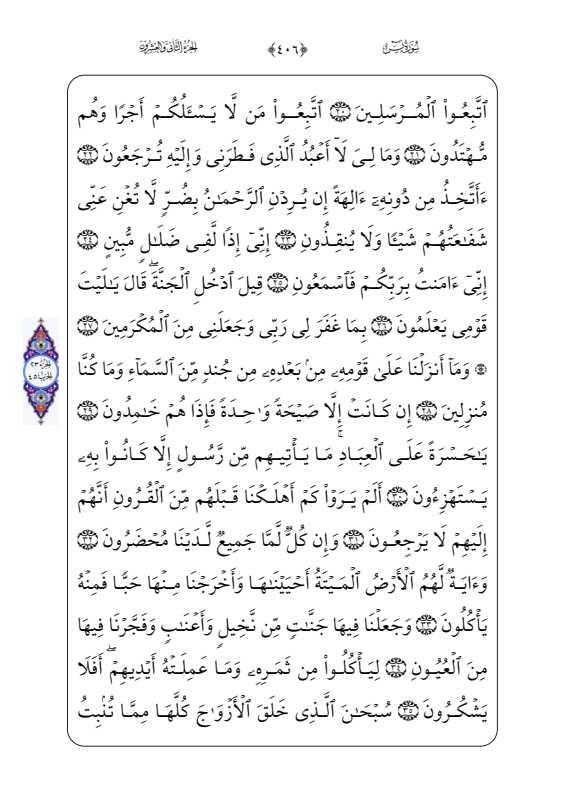 سُورَةُ يسٓ
﴿٤٠٦﴾
الجزء الثاني والعشرون
ٱتَّبِعُوا۟ ٱلْمُرْسَلِينَ ٢٠ ٱتَّبِعُوا۟ مَن لَّا يَسْـَٔلُكُمْ أَجْرًا وَهُم
مُّهْتَدُونَ ٢١ وَمَا لِىَ لَآ أَعْبُدُ ٱلَّذِى فَطَرَنِى وَإِلَيْهِ تُرْجَعُونَ ٢٢
ءَأَتَّخِذُ مِن دُونِهِۦٓ ءَالِهَةً إِن يُرِدْنِ ٱلرَّحْمَـٰنُ بِضُرٍّ لَّا تُغْنِ عَنِّى
شَفَـٰعَتُهُمْ شَيْـًٔا وَلَا يُنقِذُونِ ٢٣ إِنِّىٓ إِذًا لَّفِى ضَلَـٰلٍ مُّبِينٍ ٢٤
إِنِّىٓ ءَامَنتُ بِرَبِّكُمْ فَٱسْمَعُونِ ٢٥ قِيلَ ٱدْخُلِ ٱلْجَنَّةَ ۖ قَالَ يَـٰلَيْتَ
قَوْمِى يَعْلَمُونَ ٢٦ بِمَا غَفَرَ لِى رَبِّى وَجَعَلَنِى مِنَ ٱلْمُكْرَمِينَ ٢٧
۞ وَمَآ أَنزَلْنَا عَلَىٰ قَوْمِهِۦ مِنۢ بَعْدِهِۦ مِن جُندٍ مِّنَ ٱلسَّمَآءِ وَمَا كُنَّا
مُنزِلِينَ ٢٨ إِن كَانَتْ إِلَّا صَيْحَةً وَٰحِدَةً فَإِذَا هُمْ خَـٰمِدُونَ ٢٩
يَـٰحَسْرَةً عَلَى ٱلْعِبَادِ ۚ مَا يَأْتِيهِم مِّن رَّسُولٍ إِلَّا كَانُوا۟ بِهِۦ
يَسْتَهْزِءُونَ ٣٠ أَلَمْ يَرَوْا۟ كَمْ أَهْلَكْنَا قَبْلَهُم مِّنَ ٱلْقُرُونِ أَنَّهُمْ
إِلَيْهِمْ لَا يَرْجِعُونَ ٣١ وَإِن كُلٌّ لَّمَّا جَمِيعٌ لَّدَيْنَا مُحْضَرُونَ ٣٢
وَءَايَةٌ لَّهُمُ ٱلْأَرْضُ ٱلْمَيْتَةُ أَحْيَيْنَـٰهَا وَأَخْرَجْنَا مِنْهَا حَبًّا فَمِنْهُ
يَأْكُلُونَ ٣٣ وَجَعَلْنَا فِيهَا جَنَّـٰتٍ مِّن نَّخِيلٍ وَأَعْنَـٰبٍ وَفَجَّرْنَا فِيهَا
مِنَ ٱلْعُيُونِ ٣٤ لِيَأْكُلُوا۟ مِن ثَمَرِهِۦ وَمَا عَمِلَتْهُ أَيْدِيهِمْ ۖ أَفَلَا
يَشْكُرُونَ ٣٥ سُبْحَـٰنَ ٱلَّذِى خَلَقَ ٱلْأَزْوَٰجَ كُلَّهَا مِمَّا تُنۢبِتُ
الجزء ٢٣
الحزب ٤٥